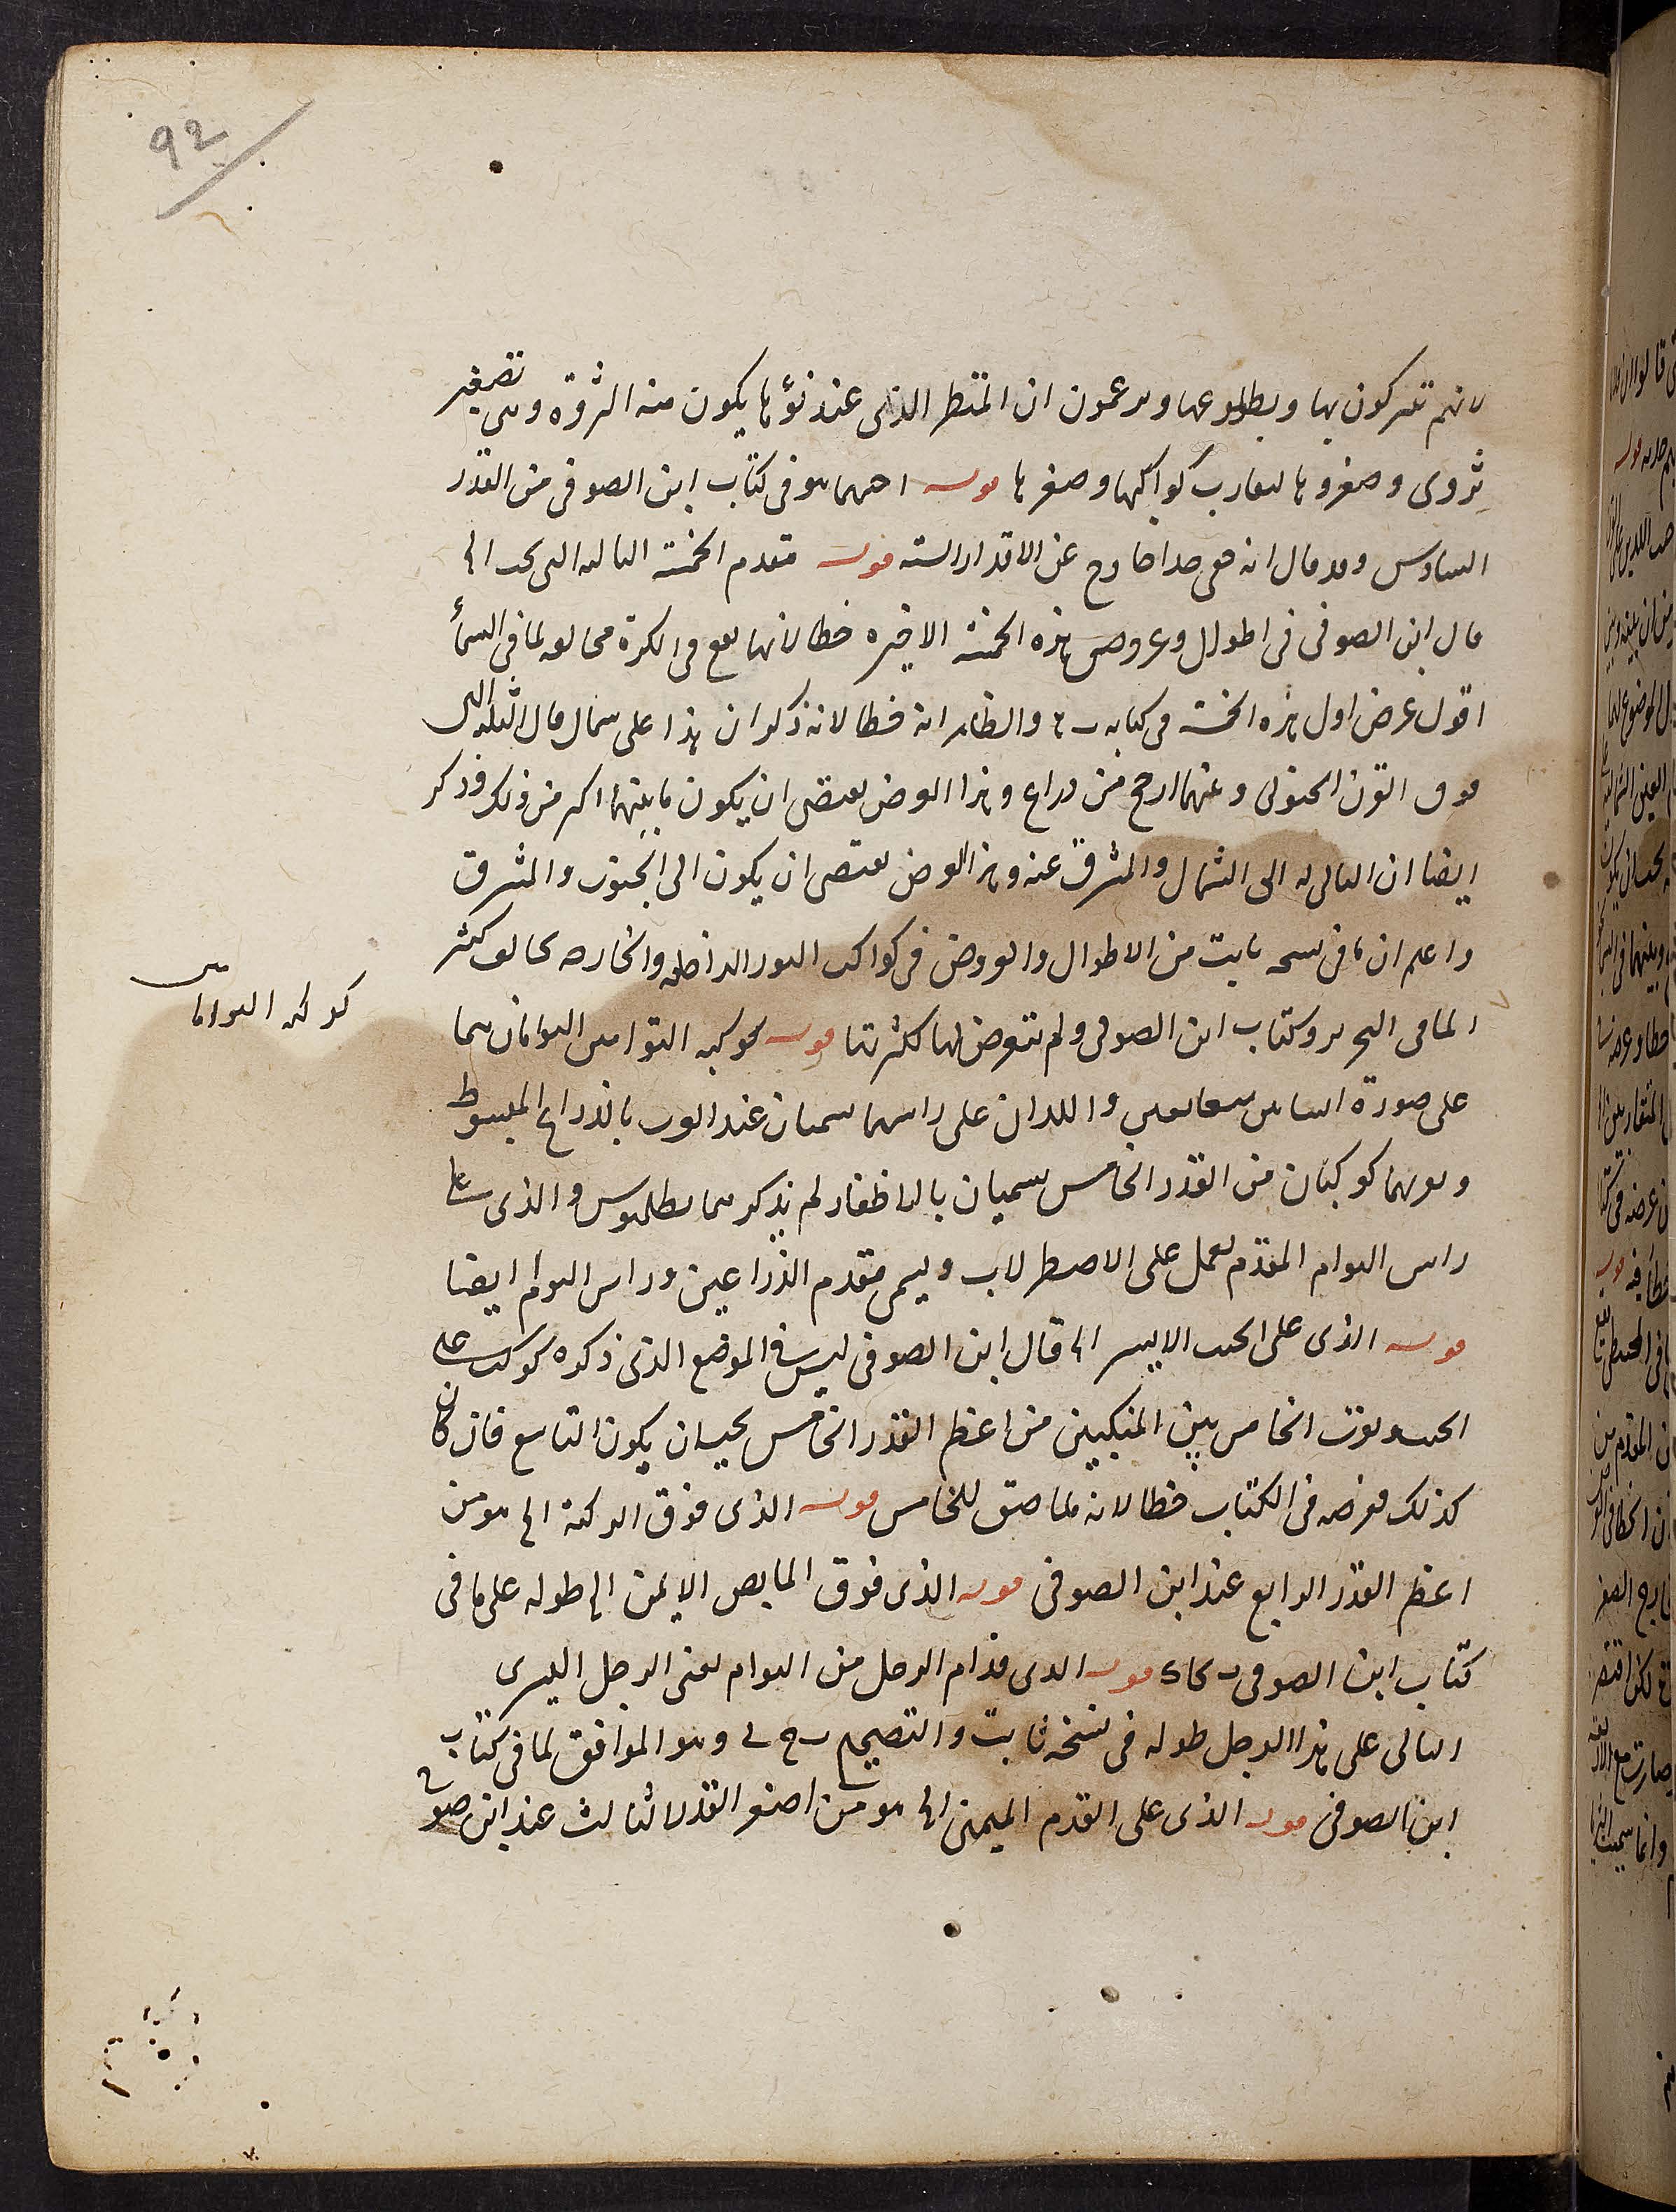 92
لانهم يتبركون بها وبطلوعها ويزعمون ان المطر الذى عند نوٴها يكون منه الثروة وهى تصغير
ثروى وصغروها لتقارب كواكبها وصغرها قوله احدهما هو فى كتاب ابن الصوفى من القدر
السادس وقد قال انه خفى جدا خارج عن الاقدار الستة قوله متقدم الخمسة التالية التى تحت الخ
قال ابن الصوفى فى اطوال وعروض هذه الخمسة الاخيرة خطا لانها تقع فى الكرة مخالفة لما فى السمأ
اقول عرض اول هذه الخمسة فى كتابه والظاهر انه خطا لانه ذكر ان هذا على شمال مال الثلثة التى
فوق القرن الجنوبى وعنهما ارجح من ذراع وهذا العرض يقتضى ان يكون ما بينهما اكثر من ذلك وذكر
ايضا ان التالى له الى الشمال والمشرق عنه وهذا العرض يقتضى ان يكون الى الجنوب والمشرق
واعلم ان ما فى نسخة ثابت من الاطوال والعروض فى كواكب الثور الداخلة والخارجة يخالف كثير
المافى التحرير وكتاب ابن الصوفى ولم نتعرض لها لكثرتها قوله كوكبة التوامين التوامان هما
على صورة انسانين متعانقين واللذان على راسهما يسميان عند العرب بالذراع المبسوطة
وبقربهما كوكبان من القدر الخامس يسميان بالاظفار لم يذكرهما بطلميوس والذى على
راس التوام المقدم يعمل على الاصطرلاب ويسمى مقدم الذراعين وراس التوام ايضا
قوله الذى على الجنب الايسر الخ قال ابن الصوفى ليس فى الموضع الذى ذكره كوكب على
الجنب وفوق الخامس بين المنكبين من اعظم القدر الخامس يجب ان يكون التاسع فان كان
كذلك فعرضه فى الكتاب خطا لانه ملاصق للخامس قوله الذى فوق الركبة الخ هو من
اعظم القدر الرابع عند ابن الصوفى قوله الذى فوق المابض الايمن الخ طوله على ما فى
كتاب ابن الصوفى قوله الذى قدام الرجل من التوام يعنى الرجل اليسرى
التالى على هذا الرجل طوله فى نسخة ثابت والتصحيح وهو الموافق لما فى كتاب
ابن الصوفى قوله الذى على القدم اليمنى الخ هو من اصغر القدر الثالث عند ابن صوفى
كوكبة التوامين